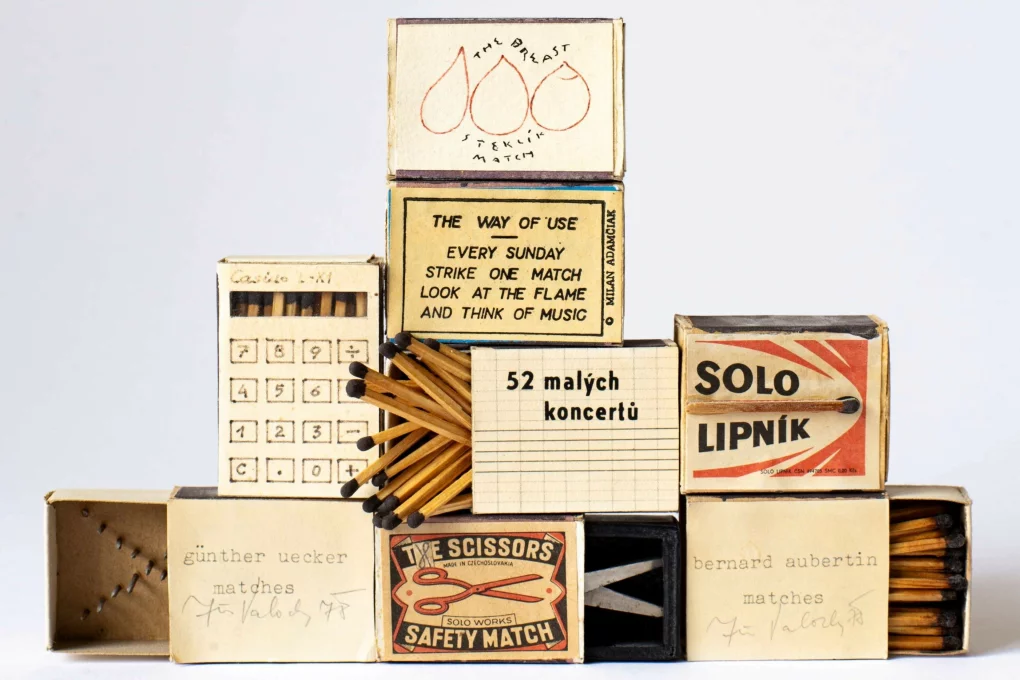 THE BREAST
STEKLÍK
MATCH
THE WAY OF USE
EVERY SUNDAY
STRIKE ONE MATCH
LOOK AT THE FLAME
AND THINK OF MUSIC
© MILAN ADAMČIAK
7 8 9 ÷
4 5 6
1 2 3 −
C . 0 +
52 malých
koncertů
SOLO
LIPNÍK
SOLO LIPNÍK
günther uecker
matches
Jiří Valoch 78
THE SCISSORS
MADE IN CZECHOSLOVAKIA
SOLO WORKS
SAFETY MATCH
bernard aubertin
matches
Jiří Valoch 78